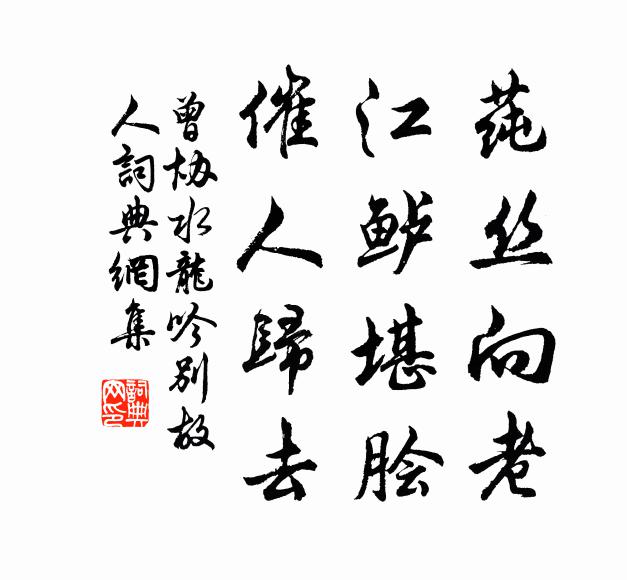 莼丝向老
江鲈堪脍
催人歸去
曾协水龍吟别故
人詞典網集
詞典网印